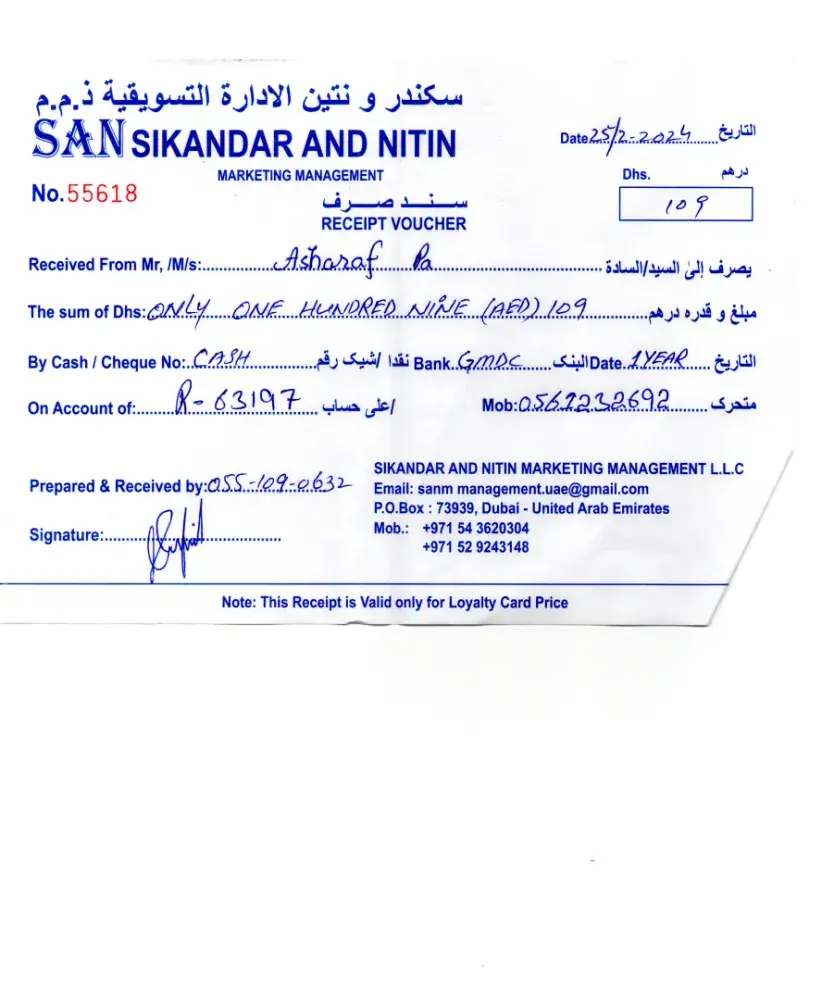 سكندر و نتين الادارة التسويقية ذ.م.م
SAN SIKANDAR AND NITIN
MARKETING MANAGEMENT
Date 25/2-2024 التاريخ
Dhs. درهم
109
No.55618
سند صرف
RECEIPT VOUCHER
Received From Mr, /M/s: Asharaf Pa يصرف إلى السيد/السادة
The sum of Dhs: ONLY ONE HUNDRED NINE (AED) 109 مبلغ و قدره درهم
By Cash / Cheque No: CASH نقدا /شيك رقم Bank GMDC البنك Date 1YEAR التاريخ
On Account of: R- 63197 /على حساب Mob: 0561232692 متحرك
Prepared & Received by: 055-109-0632
Signature:
SIKANDAR AND NITIN MARKETING MANAGEMENT L.L.C
Email: sanm management.uae@gmail.com
P.O.Box : 73939, Dubai - United Arab Emirates
Mob.: +971 54 3620304
+971 52 9243148
Note: This Receipt is Valid only for Loyalty Card Price